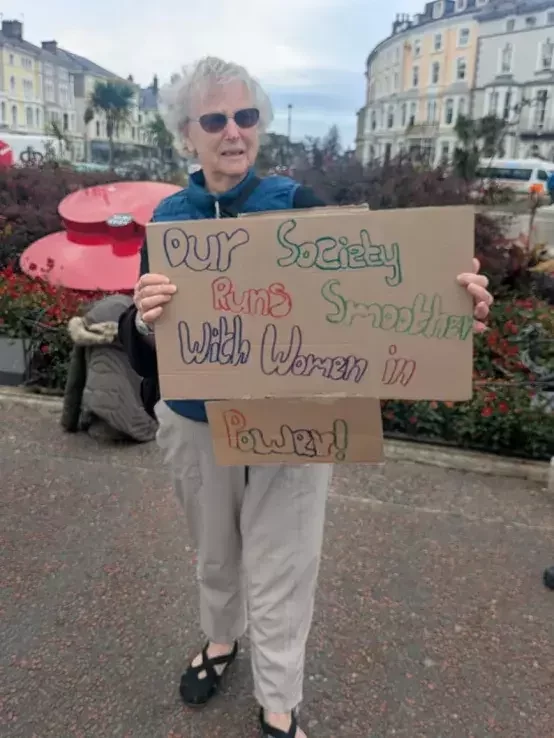 Our Society
Runs Smoother
With Women in
Power!